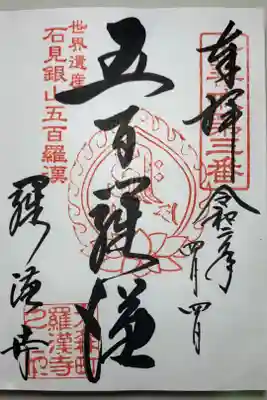 奉拝
令和二年
四月四日
五百羅漢
世界遺産
石見銀山五百羅漢
羅漢寺
羅漢寺